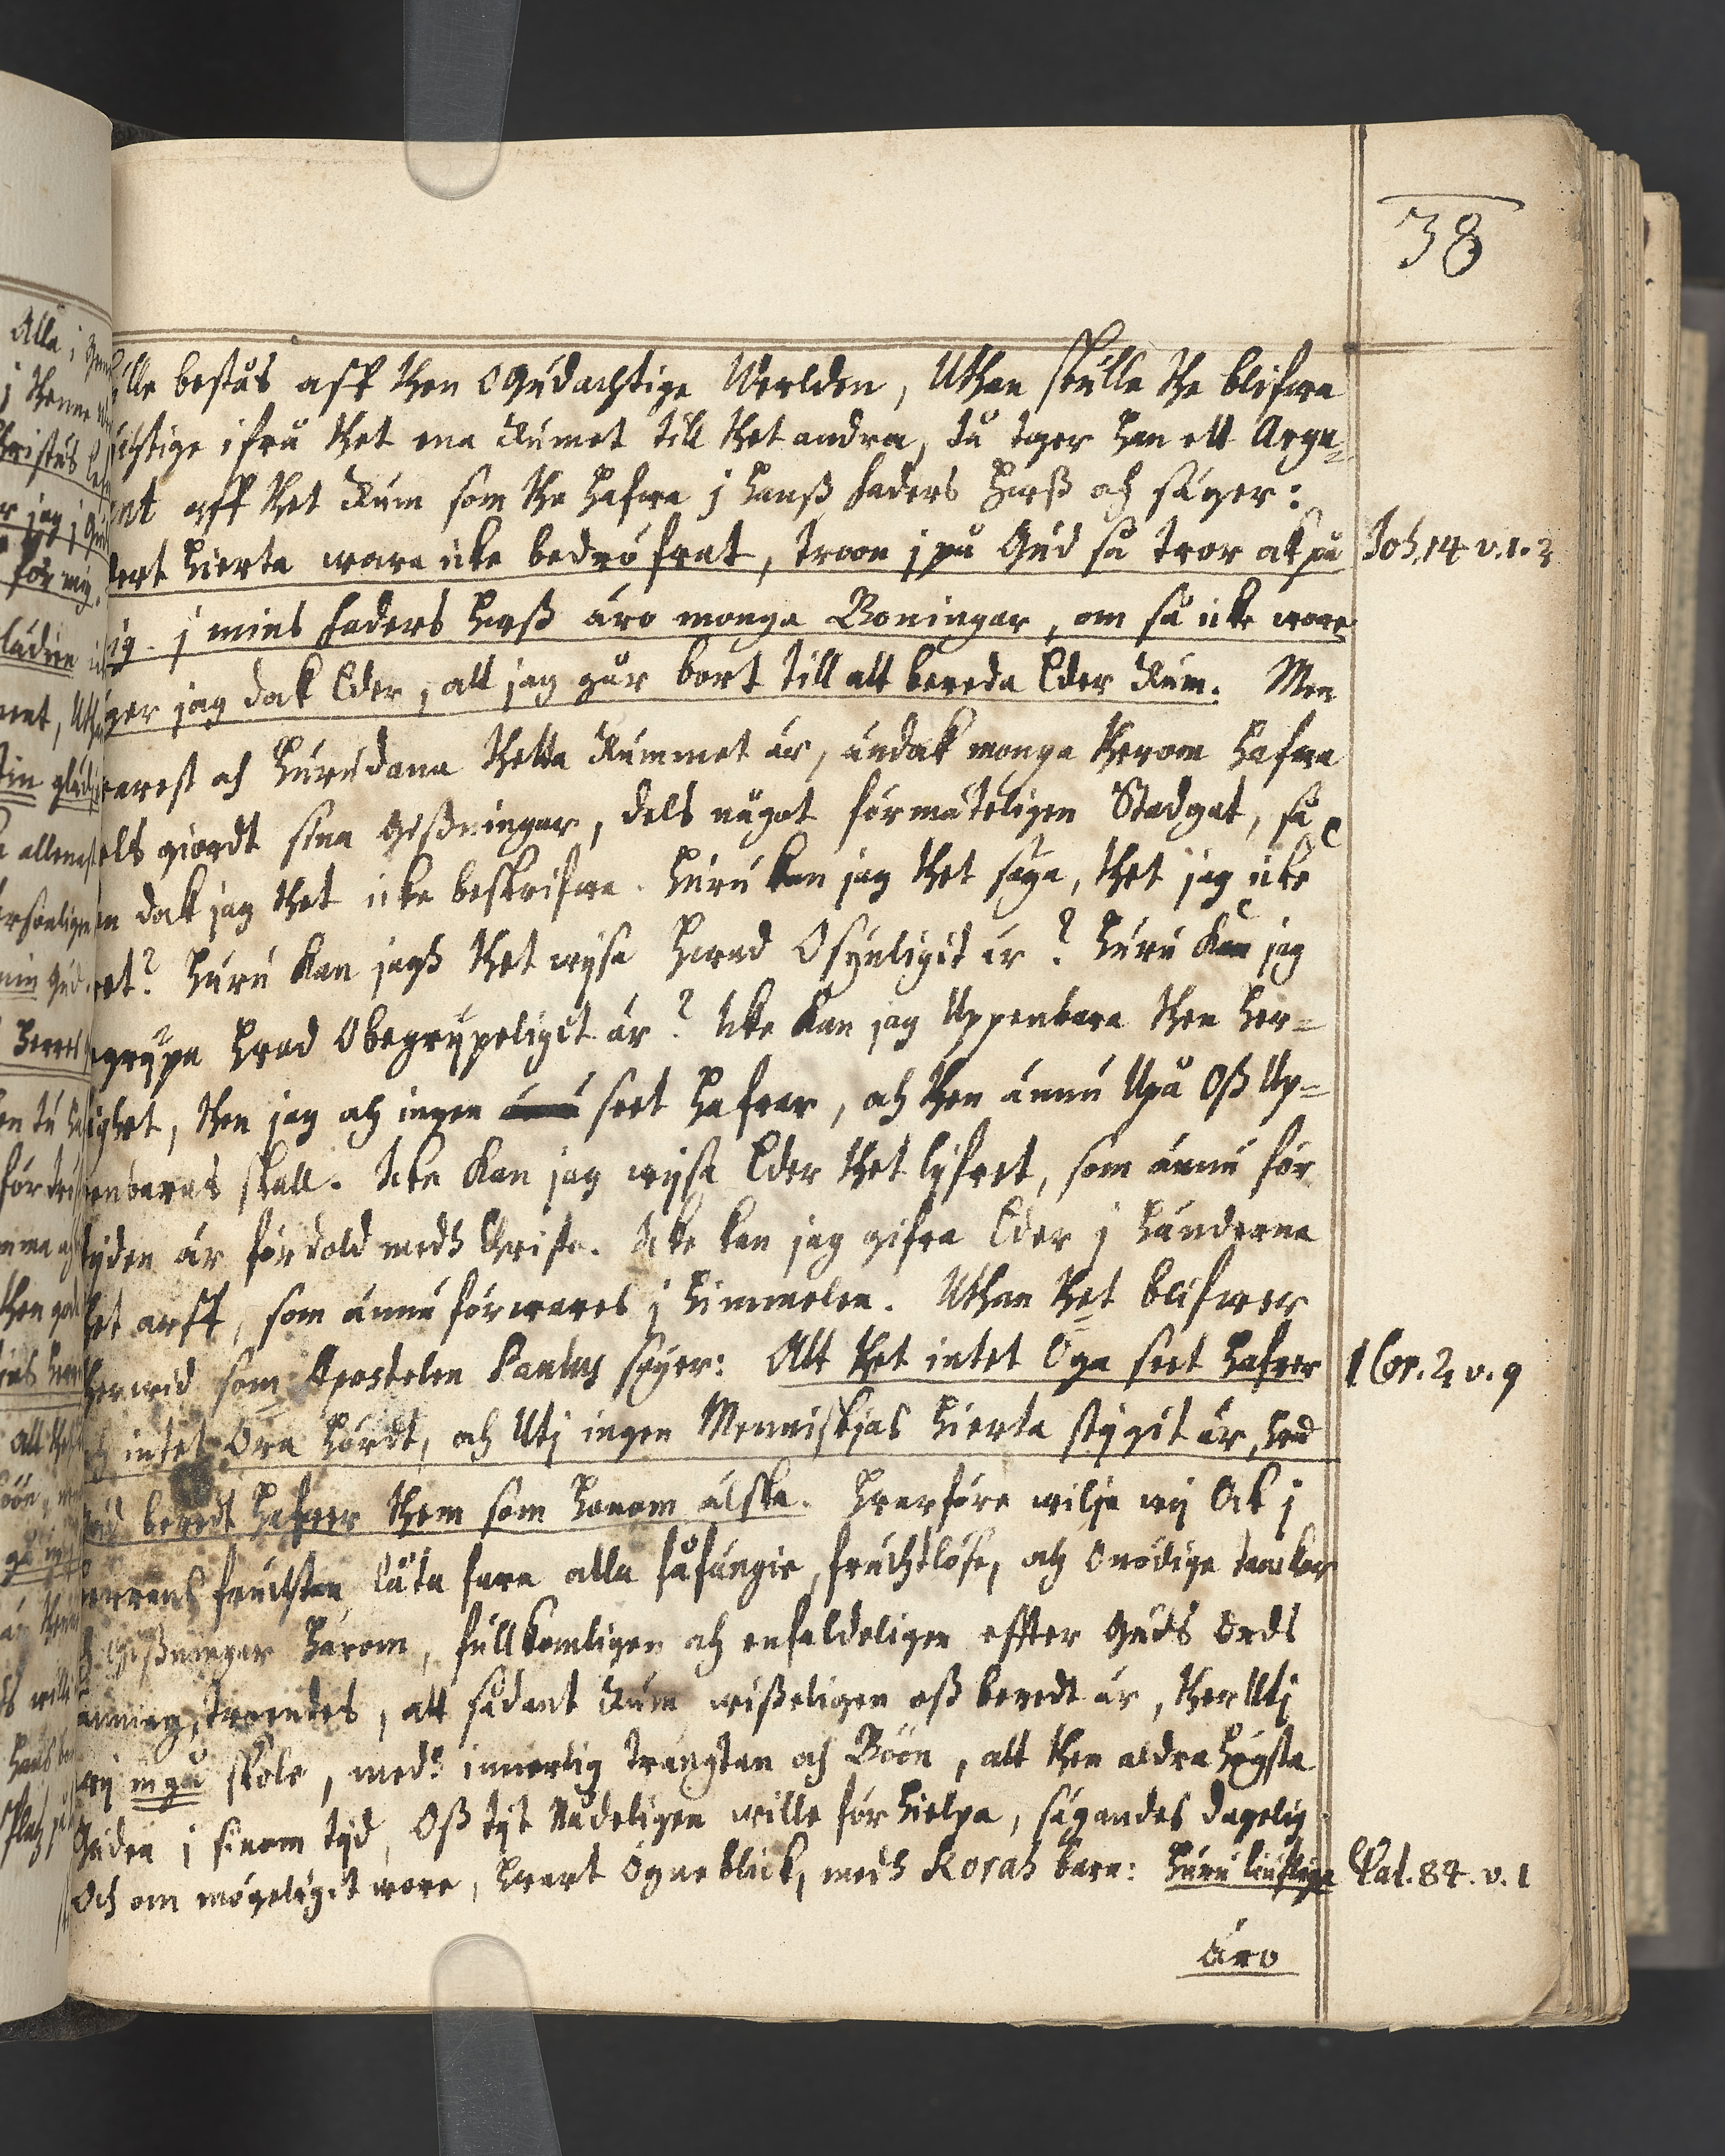 38
ille bestås aff then Ogudachtige Werlden, Uthan skulle the blifwa
uchtige ifrå thet ena Rumet till thet andra, då tager han ett Argu=
ent aff thet Rum som the hafwa j hanß faders huß och säger:
dert hierta ware icke bedröfwat, troon j på Gud så tror ok på
Joh. 14 v. 1. 2
ig. j mins faders huß äro monga Boningar, om så icke wore
äger jag dok Eder, att jag går bort till att bereda Eder Rum. Men
warest och hurudana thetta Rummet är, ändok monga therom hafwa
els giordt sina Gißningar, dels något förmäteligen Stadgat, så
n dok jag thet icke beskrifwa. Huru kan jag thet säya, thet jag icke
et? Huru Kan jagh thet wijsa hwad Osynligit är? Huru Kan jag
egrijpa hwad Obegrijpeligit är? Icke Kan jag Uppenbara then her=
ighet, then jag och ingen seet hafwer, och then ännu Upå Oß Up=
enbaras skall. Icke Kan jag wijsa Eder thet lijfwet, som ännu för
tijden är fördold medh Christo. Icke kan jag gifwa Eder j händerna
het arff, som ännu förwares j himmelen. Uthan thet blifwer
herwid som Apostelen Paulus säger: Alt thet intet Öga seet hafwer
1 Cor. 2 v. 9
h intet Öra hördt, och Utj ingen Menniskjas hierta stigit är, hwad
ud beredt hafwer them som honom älska. Hwarföre wilje wij Ok j
errans fruchtan låta fara alla fåfängie, fruchtlöse, och Onödige tanckar
h Gißningar härom, fullkomligen och enfaldeligen effter Guds Ords
aning, troendes, att sådant Rum wißeligen oß beredt är, ther Utj
wij ingå skole, medh innerlig trängtan och Böön, att then aldrahögsta
Guden j sinom tijd, Oß tijt Nådeligen wille förhielpa, säyandes dagelig
Och om möyeligit wore, hwart Ögneblick, medh Korah barn: Huru liuflige
Psal. 84. v. 1
äro